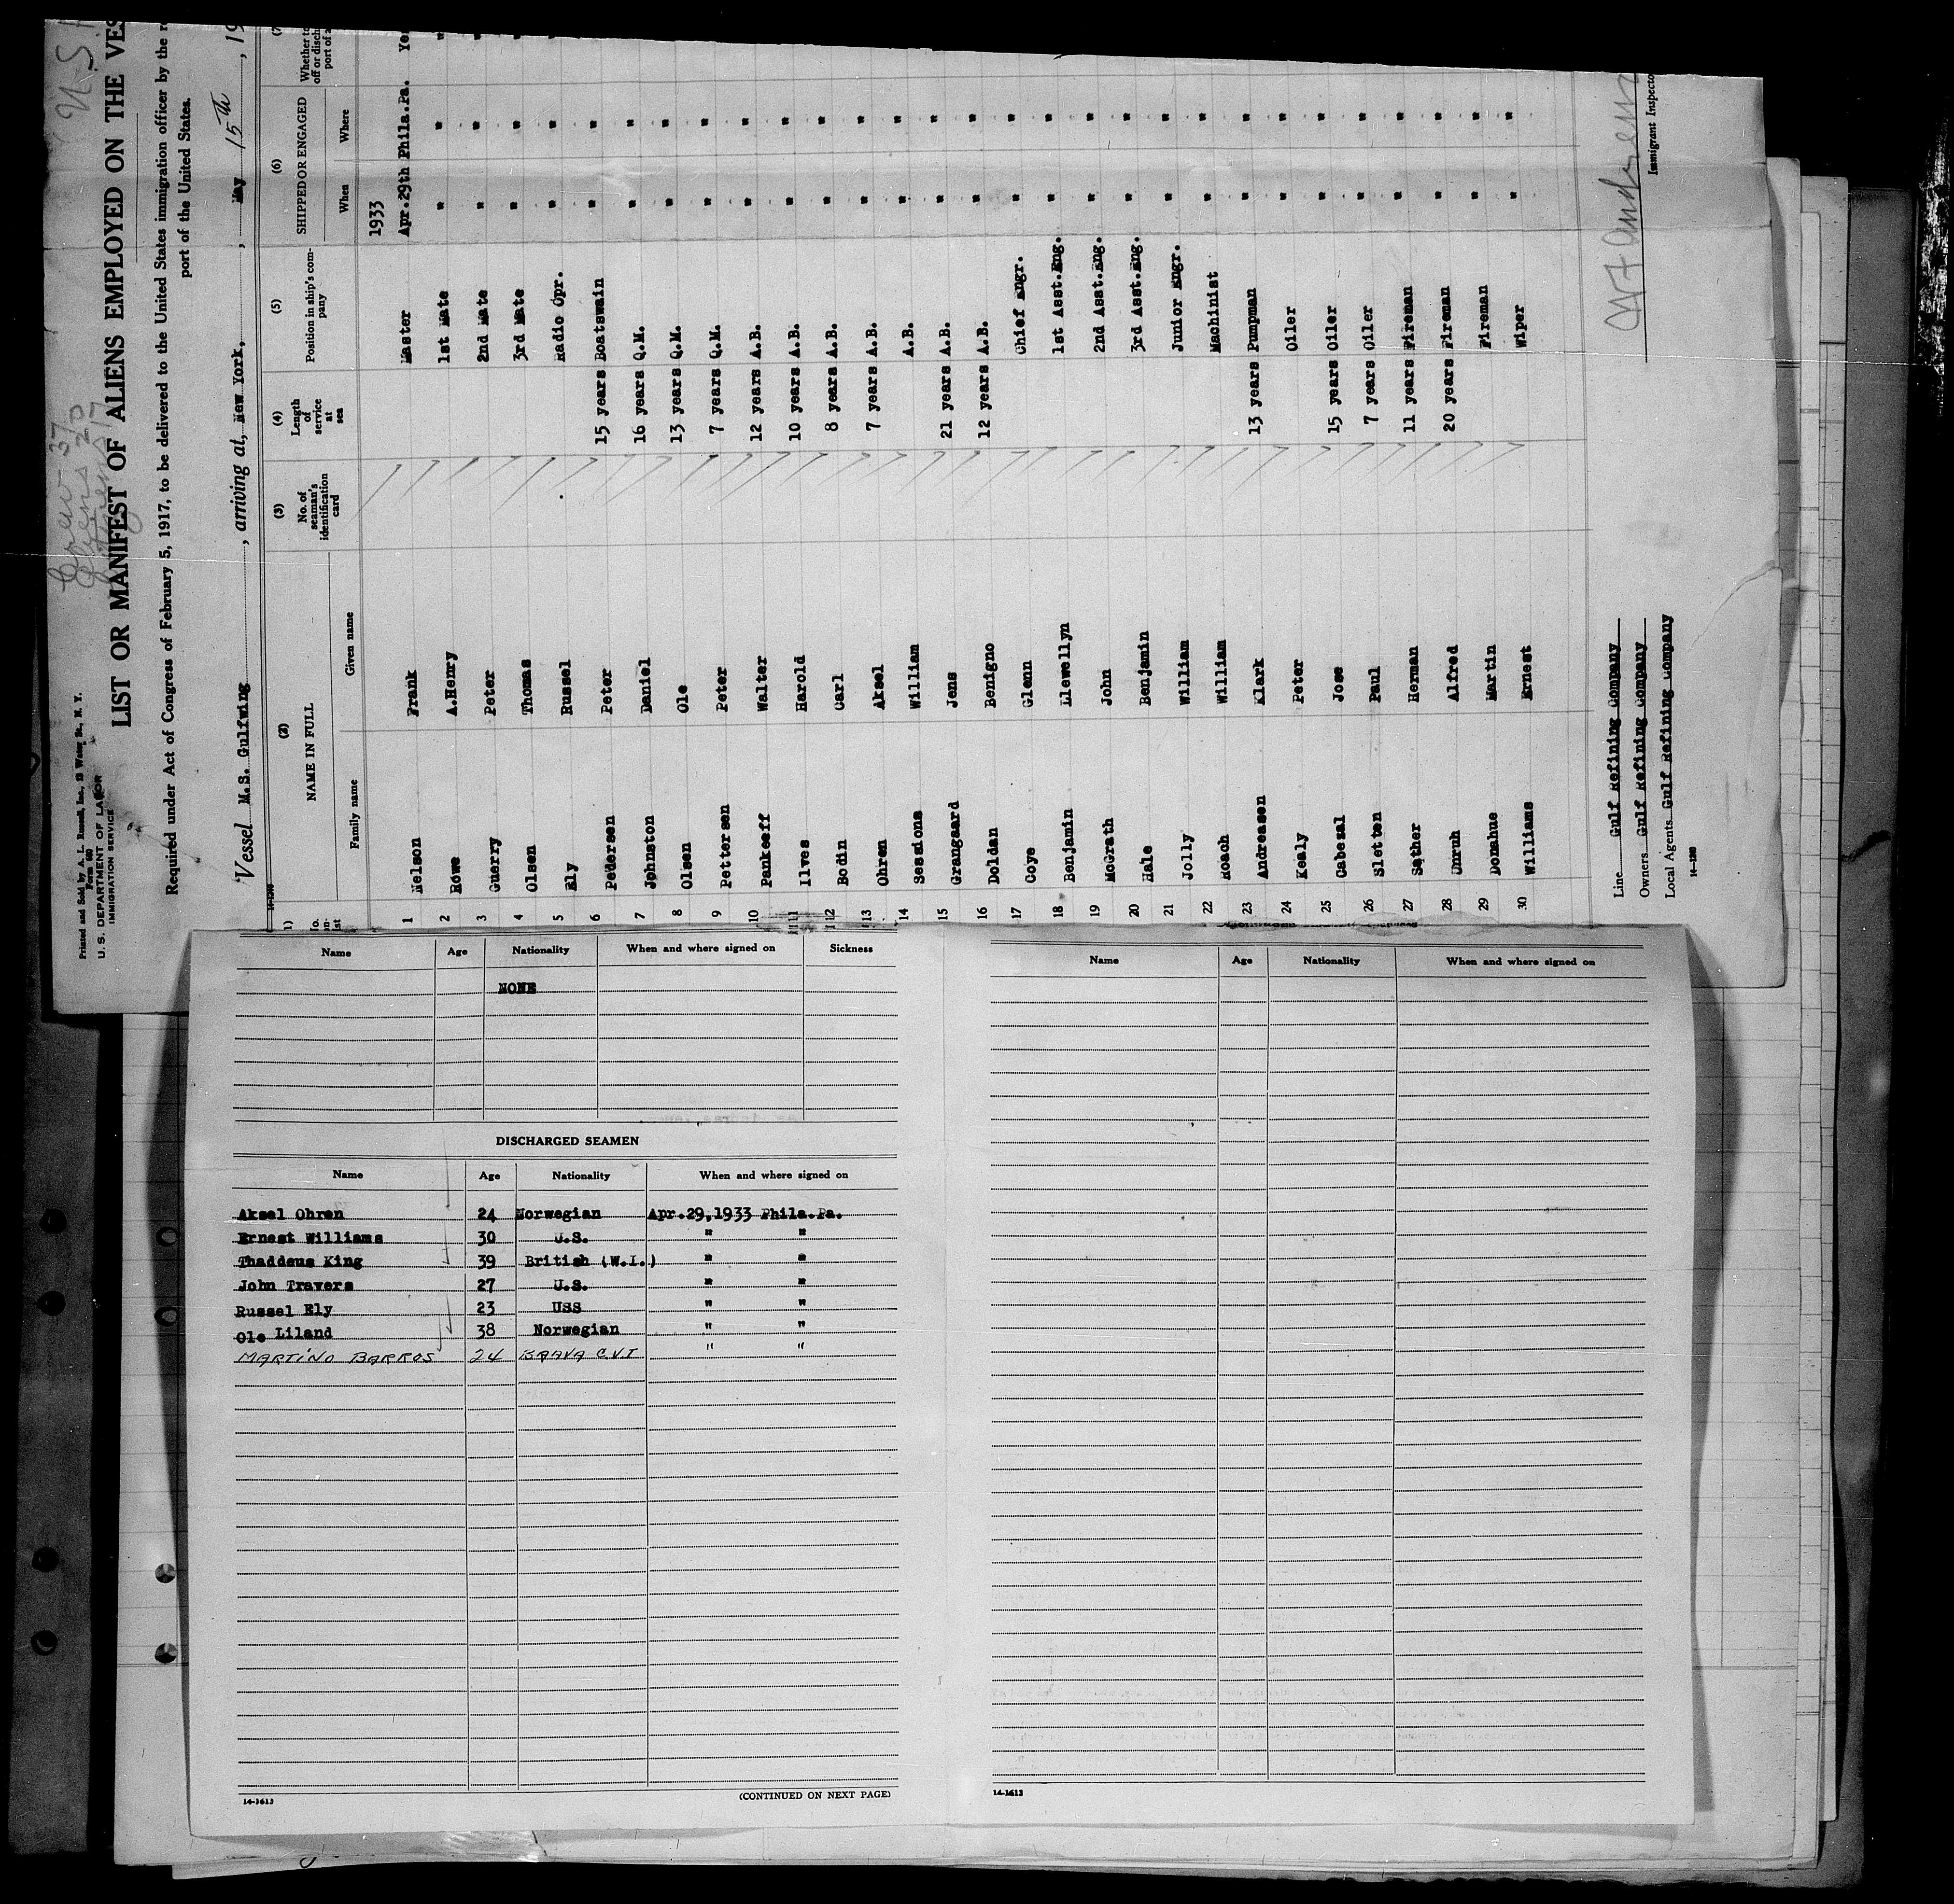 Printed and Sold by A. L. Russell, Inc., 13 Water St., N. Y.
Form 680
U. S. DEPARTMENT OF LABOR
IMMIGRATION SERVICE
Crew 37
Aliens 20
17
U.S.
LIST OR MANIFEST OF ALIENS EMPLOYED ON THE VES
Required under Act of Congress of February 5, 1917, to be delivered to the United States immigration officer by the r
port of the United States.
Vessel M.S. Gulfwing, arriving at, New York, May 15th, 19
(2) (3) (4) (5) (6)
NAME IN FULL
Family name Given name
No. of seaman's identification card
Length of service at sea
Position in ship's company
SHIPPED OR ENGAGED
When Where
1933
1 Nelson Frank Master Apr.29th Phila.Pa. Yes
2 Rowe A.Henry 1st Mate " "
3 Guerry Peter 2nd Mate " "
4 Olsen Thomas 3rd Mate " "
5 Ely Russel Radio Opr. " "
6 Pedersen Peter 15 years Boatswain " "
7 Johnston Daniel 16 years Q.M. " "
8 Olsen Ole 13 years Q.M. " "
9 Pettersen Peter 7 years Q.M. " "
10 Pankeeff Walter 12 years A.B. " "
11 Ilves Harold 10 years A.B. " "
12 Bodin Carl 8 years A.B. " "
13 Ohren Aksel 7 years A.B. " "
14 Sessions William A.B. " "
15 Grangaard Jens 21 years A.B. " "
16 Doldan Benigno 12 years A.B. " "
17 Coye Glenn Chief Engr. " "
18 Benjamin Llewellyn 1st Asst.Eng. " "
19 McGrath John 2nd Asst.Eng. " "
20 Hale Benjamin 3rd Asst.Eng. " "
21 Jolly William Junior Engr. " "
22 Roach William Machinist " "
23 Andreasen Klark 13 years Pumpman " "
24 Kealy Peter Oiler " "
25 Cabezal Jose 15 years Oiler " "
26 Sletten Paul 7 years Oiler " "
27 Sather Herman 11 years Fireman " "
28 Unruh Alfred 20 years Fireman " "
29 Donahue Martin Fireman " "
30 Williams Ernest Wiper " "
Line Gulf Refining Company
Owners Gulf Refining Company
Local Agents Gulf Refining Company
14-1240
Immigrant Inspecto
Name Age Nationality When and where signed on Sickness
NONE
DISCHARGED SEAMEN
Name Age Nationality When and where signed on
Aksel Ohren 24 Norwegian Apr.29,1933 Phila.Pa.
Ernest Williams 30 U.S. " "
Thaddeus King 39 British (W.I.) " "
John Travers 27 U.S. " "
Russel Ely 23 USS " "
Ole Liland 38 Norwegian " "
MARTINO BARROS 24 BRAVA C.V.I " "
14-1613
(CONTINUED ON NEXT PAGE)
Name Age Nationality When and where signed on
14-1613